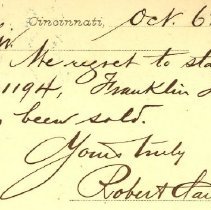 Cincinnati, Oct. 6
We regret to sta
1194, Franklin
been sold.
Yours truly
Robert Clar